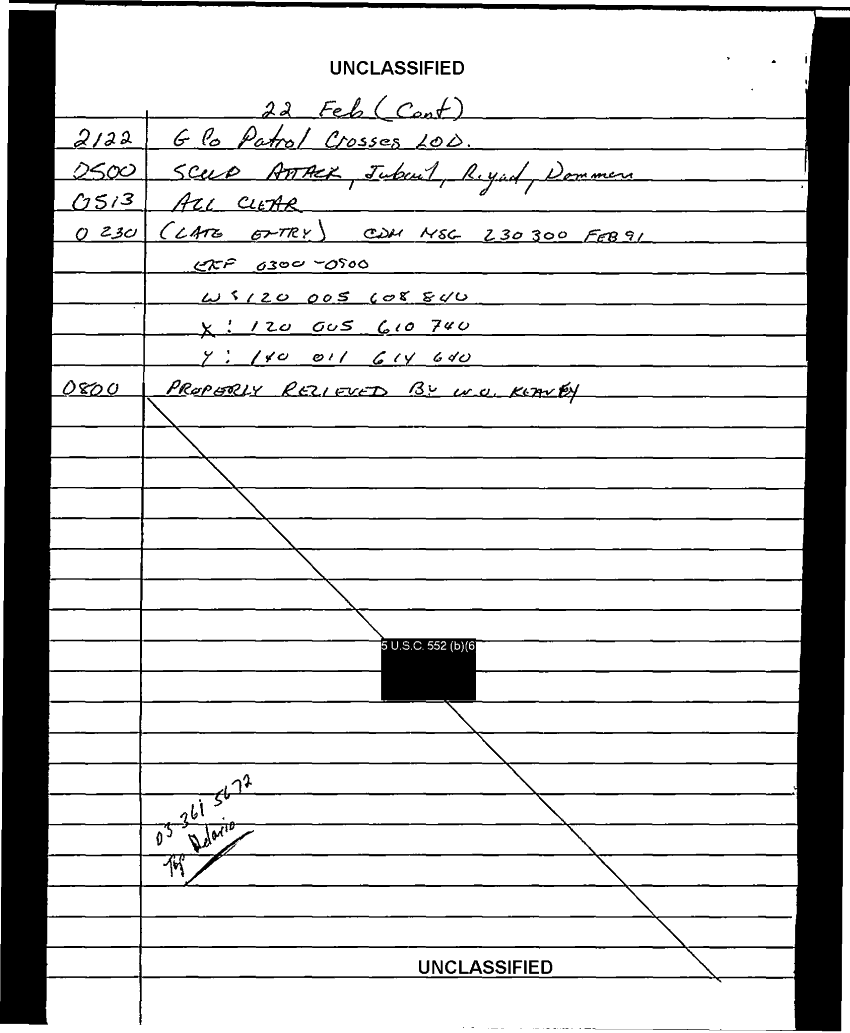 UNCLASSIFIED
22 Feb (Cont)
2122 G Co Patrol Crosses LOD.
0500 SCUD ATTACK, Jubail, Riyad, Dammem
0513 ALL CLEAR
0230 (LATE ENTRY) CDM MSG 230300 FEB 91
0300-0900
W: 120 005 608 840
X: 120 005 610 740
Y: 140 011 614 640
0800 PROPERLY RELIEVED BY W.O.
5 U.S.C. 552 (b)(6
03 361 5672
UNCLASSIFIED